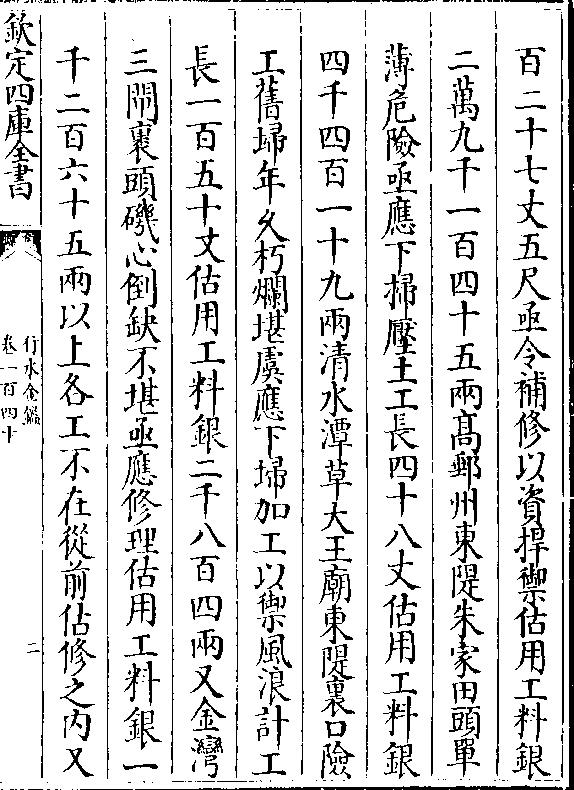 百二十七丈五尺亟令補修以資捍禦估用工料銀
二萬九千一百四十五兩高郵州東隄朱家田頭單
薄危險亟應下掃壓土工長四十八丈估用工料銀
四千四百一十九兩清水潭草大王廟東隄裏口險
工舊埽年久朽爛堪虞應下埽加工以禦風浪計工
長一百五十丈估用工料銀二千八百四兩又金灣
三閘裏頭磯心倒缺不堪亟應修理估用工料銀一
千二百六十五兩以上各工不在從前估修之内又
欽定四庫全書
行水金鑑
卷一百四十
二